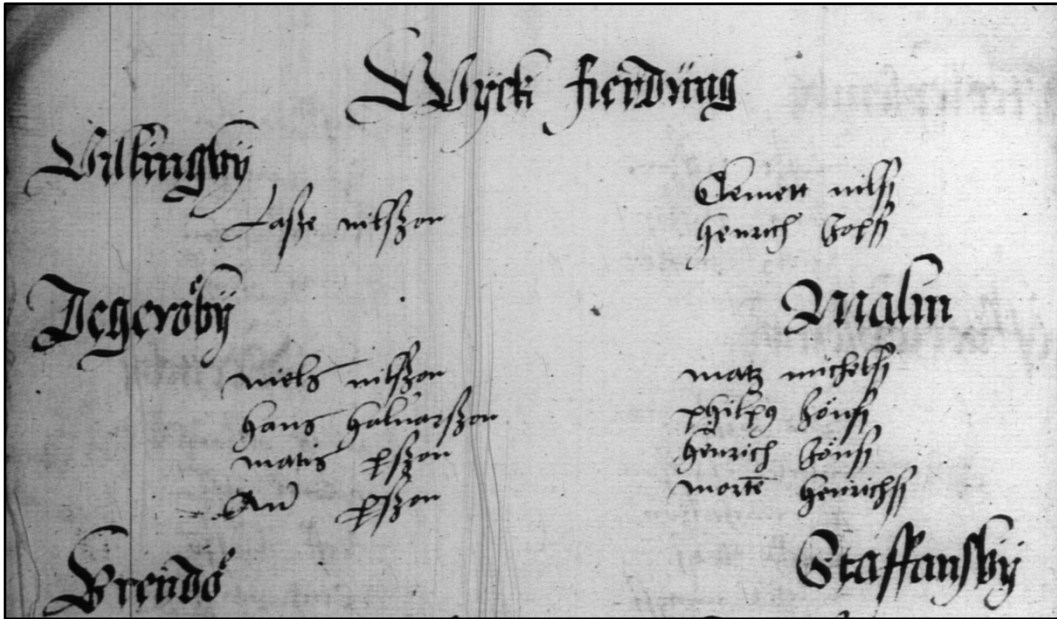 Wyck fierdüng
Billingby
Lasze nilszon
Degeröby
niels nilszon
hans haluarszon
matis pszon
And pszon
Brendö
Clemett nilss
henrich
Malin
matz michelss
philpus Jönss
henrich Jönss
morte henrichss
Staffansby